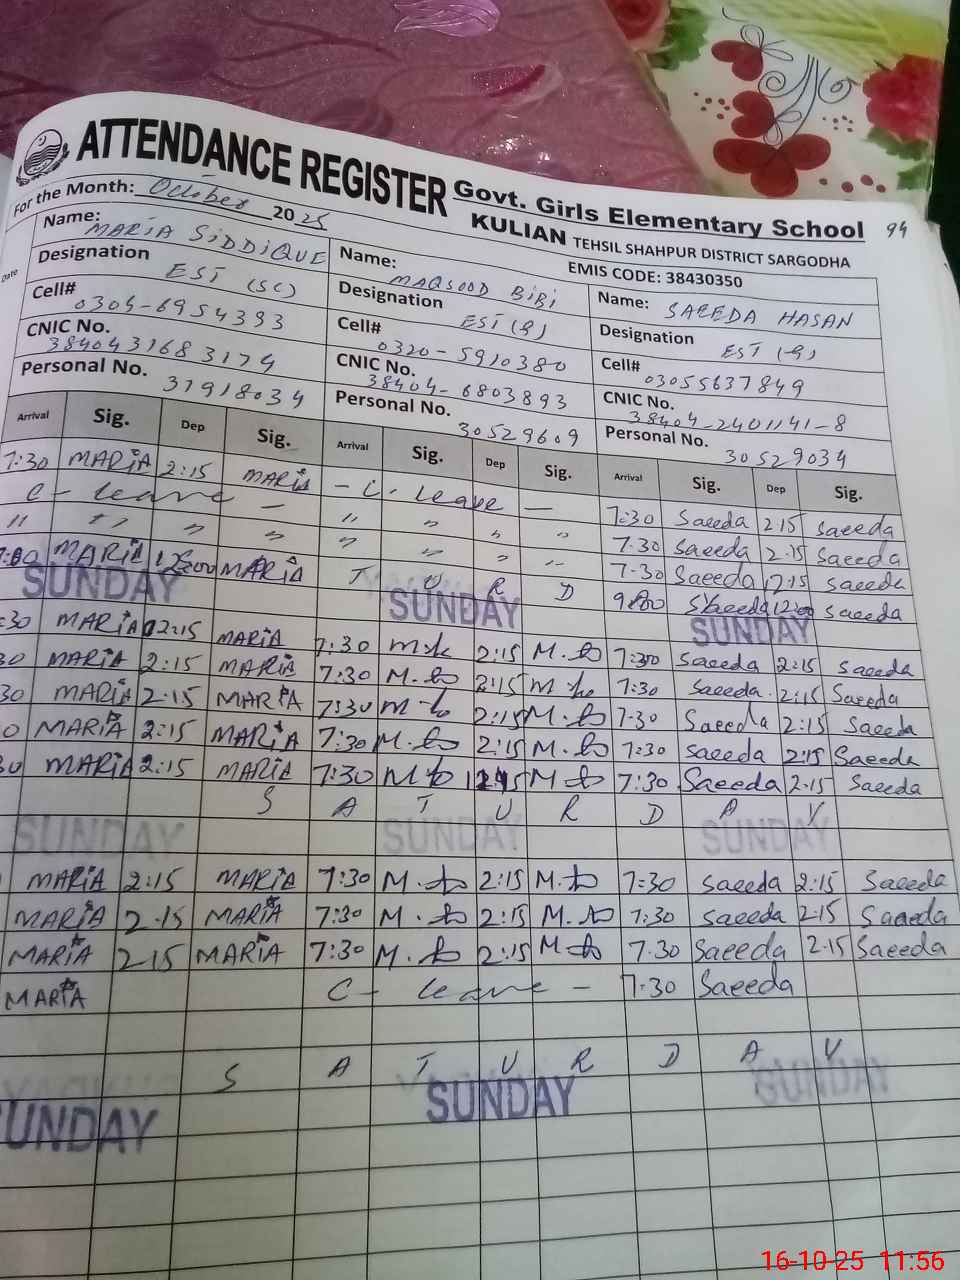 ATTENDANCE REGISTER Govt. Girls Elementary School 94
For the Month: October 2025 KULIAN TEHSIL SHAHPUR DISTRICT SARGODHA
EMIS CODE: 38430350
Date
Name: MARIA SIDDIQUE Name: MAQSOOD BIBI Name: SAEEDA HASAN
Designation EST (SC) Designation EST (g) Designation EST (g)
Cell# 0304-6954393 Cell# 0320-5910380 Cell# 03055637849
CNIC No. 3840431683174 CNIC No. 38404-6803893 CNIC No. 38404-2401141-8
Personal No. 31918034 Personal No. 30529609 Personal No. 30529034
Arrival Sig. Dep Sig. Arrival Sig. Dep Sig. Arrival Sig. Dep Sig.
7:30 MARIA 2:15 MARIA - C- Leave - 7:30 Saeeda 2:15 Saeeda
C- leave - " " " " 7:30 Saeeda 2:15 Saeeda
" " " " " " " " 7:30 Saeeda 12:15 Saeeda
MARIA MARIA T U R D Saeeda Saeeda
SUNDAY SUNDAY SUNDAY
:30 MARIA 2:15 MARIA 7:30 2:15 M. 7:30 Saeeda 2:15 Saeeda
30 MARIA 2:15 MARIA 7:30 M. 2:15 M 7:30 Saeeda 2:15 Saeeda
30 MARIA 2:15 MARIA 7:30 M 2:15 M. 7:30 Saeeda 2:15 Saeeda
0 MARIA 2:15 MARIA 7:30 M. 2:15 M. 7:30 Saeeda 2:15 Saeeda
30 MARIA 2:15 MARIA 7:30 M M 7:30 Saeeda 2:15 Saeeda
S A T U R D A Y
SUNDAY SUNDAY SUNDAY
MARIA 2:15 MARIA 7:30 M. 2:15 M. 7:30 Saeeda 2:15 Saeeda
MARIA 2:15 MARIA 7:30 M. 2:15 M. 7:30 Saeeda 2:15 Saeeda
MARIA 215 MARIA 7:30 M. 2:15 M 7:30 Saeeda 2:15 Saeeda
MARIA C- leave - 7:30 Saeeda
S A T U R D A Y
SUNDAY SUNDAY SUNDAY
16-10-25 11:56